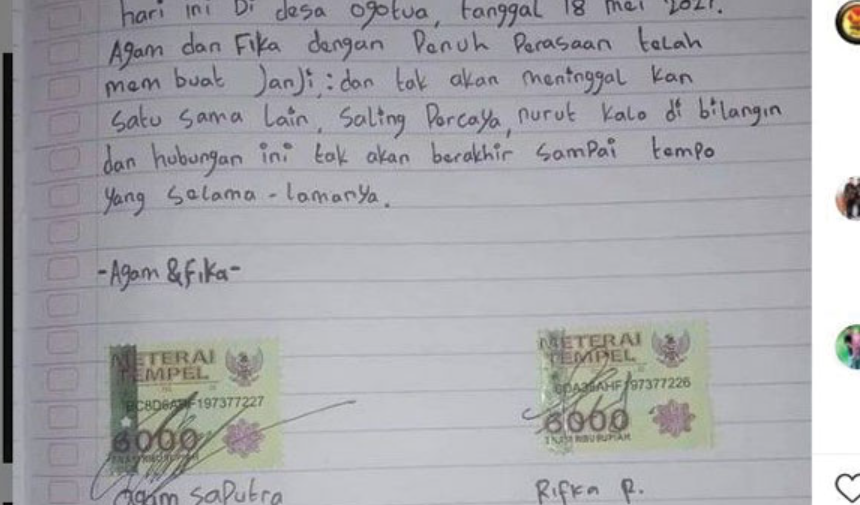 hari ini Di desa ogotua, tanggal 18 mei 2021.
Agam dan Fika dengan Penuh Perasaan telah
mem buat Janji : dan tak akan meninggal kan
Satu Sama Lain, Saling Percaya, nurut kalo di bilangin
dan hubungan ini tak akan berakhir Sampai tempo
yang Selama - lamanya.
-Agam & Fika-
METERAI
TEMPEL
197377227
6000
Agam Saputra
METERAI
TEMPEL
AHF197377226
6000
ENAM RIBU RUPIAH
Rifka R.